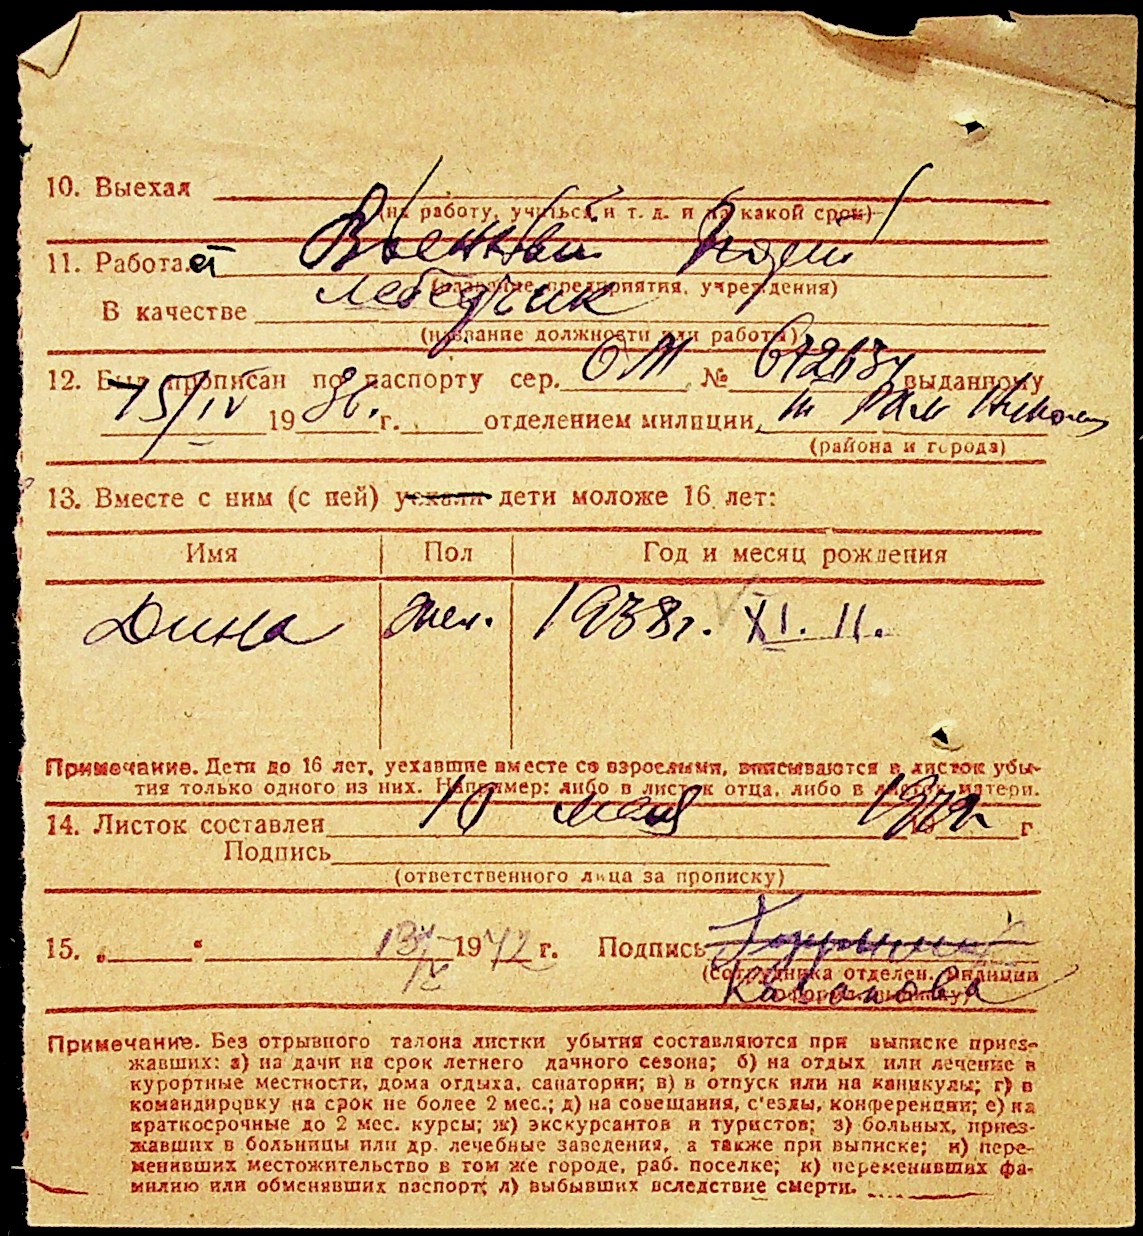 10. Выехал
(на работу, учиться и т. д. и на какой срок)
11. Работает Военный Порт
(название предприятия, учреждения)
В качестве лебедчик
(название должности или работы)
12. Был прописан по паспорту сер. ОМ № 672634 выданному
15/IV 1936. г. отделением милиции,
(района и города)
13. Вместе с ним (с ней) уехали дети моложе 16 лет:
Имя Пол Год и месяц рождения
Дина жен. 1938г. XI. 11.
Примечание. Дети до 16 лет, уехавшие вместе со взрослыми, вписываются в листок убы-
тия только одного из них. Например: либо в листок отца, либо в листок матери.
14. Листок составлен 10 мая 1942 г
Подпись
(ответственного лица за прописку)
15. „ “ 13/IV 1942 г. Подпись
(сотрудника отделен. милиции
Казакова
Примечание. Без отрывного талона листки убытия составляются при выписке приез-
жавших: а) на дачи на срок летнего дачного сезона; б) на отдых или лечение в
курортные местности, дома отдыха, санатории; в) в отпуск или на каникулы; г) в
командировку на срок не более 2 мес.; д) на совещания, с'езды, конференции; е) на
краткосрочные до 2 мес. курсы; ж) экскурсантов и туристов; з) больных, приез-
жавших в больницы или др. лечебные заведения, а также при выписке; и) пере-
менивших местожительство в том же городе, раб. поселке; к) переменивших фа-
милию или обменявших паспорт; л) выбывших вследствие смерти.